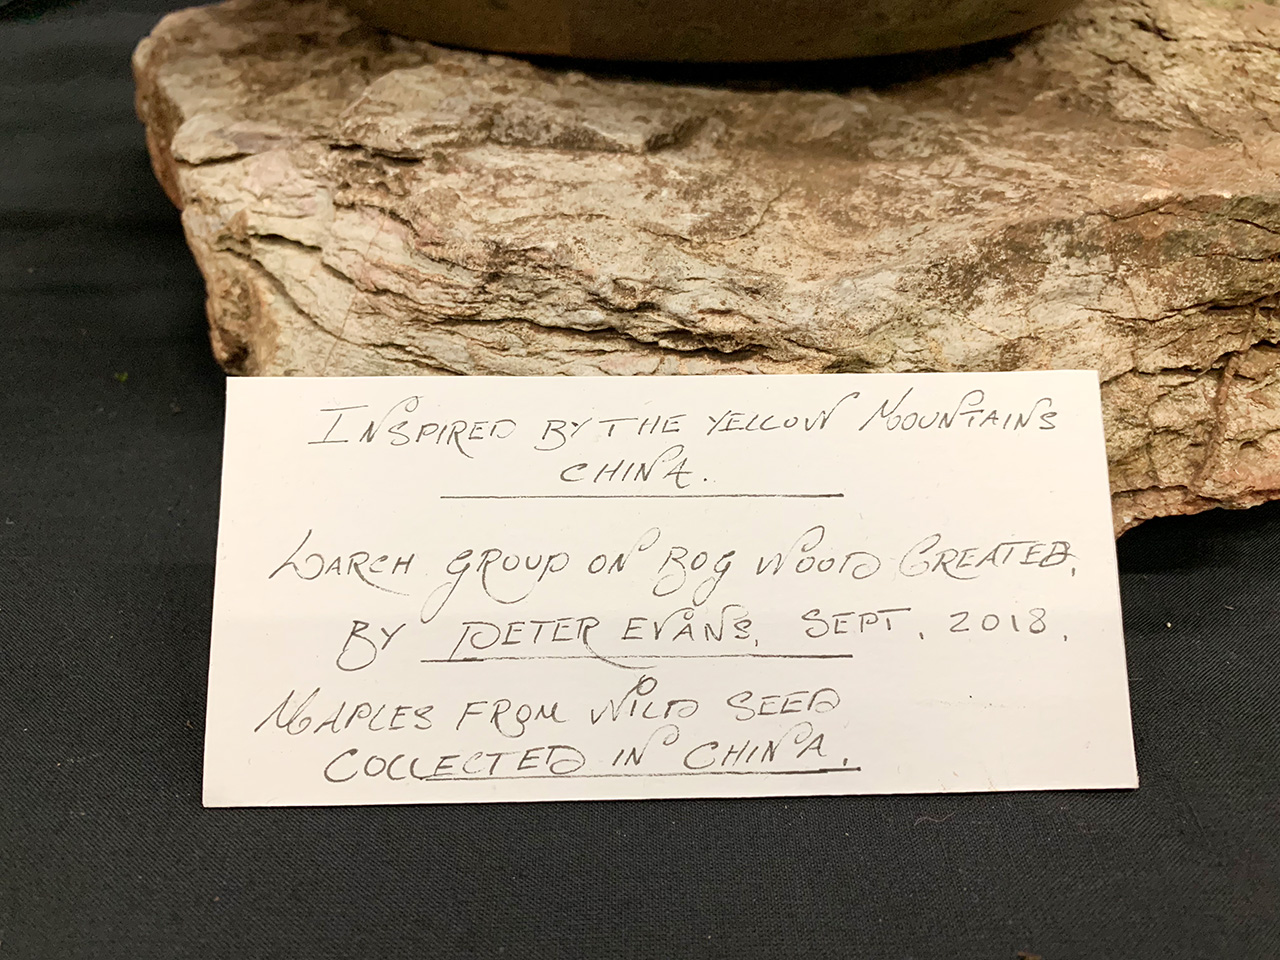 INSPIRED BY THE YELLOW MOUNTAINS
CHINA.
LARCH GROUP ON BOG WOOD CREATED,
BY PETER EVANS, SEPT, 2018,
MAPLES FROM WILD SEED
COLLECTED IN CHINA.